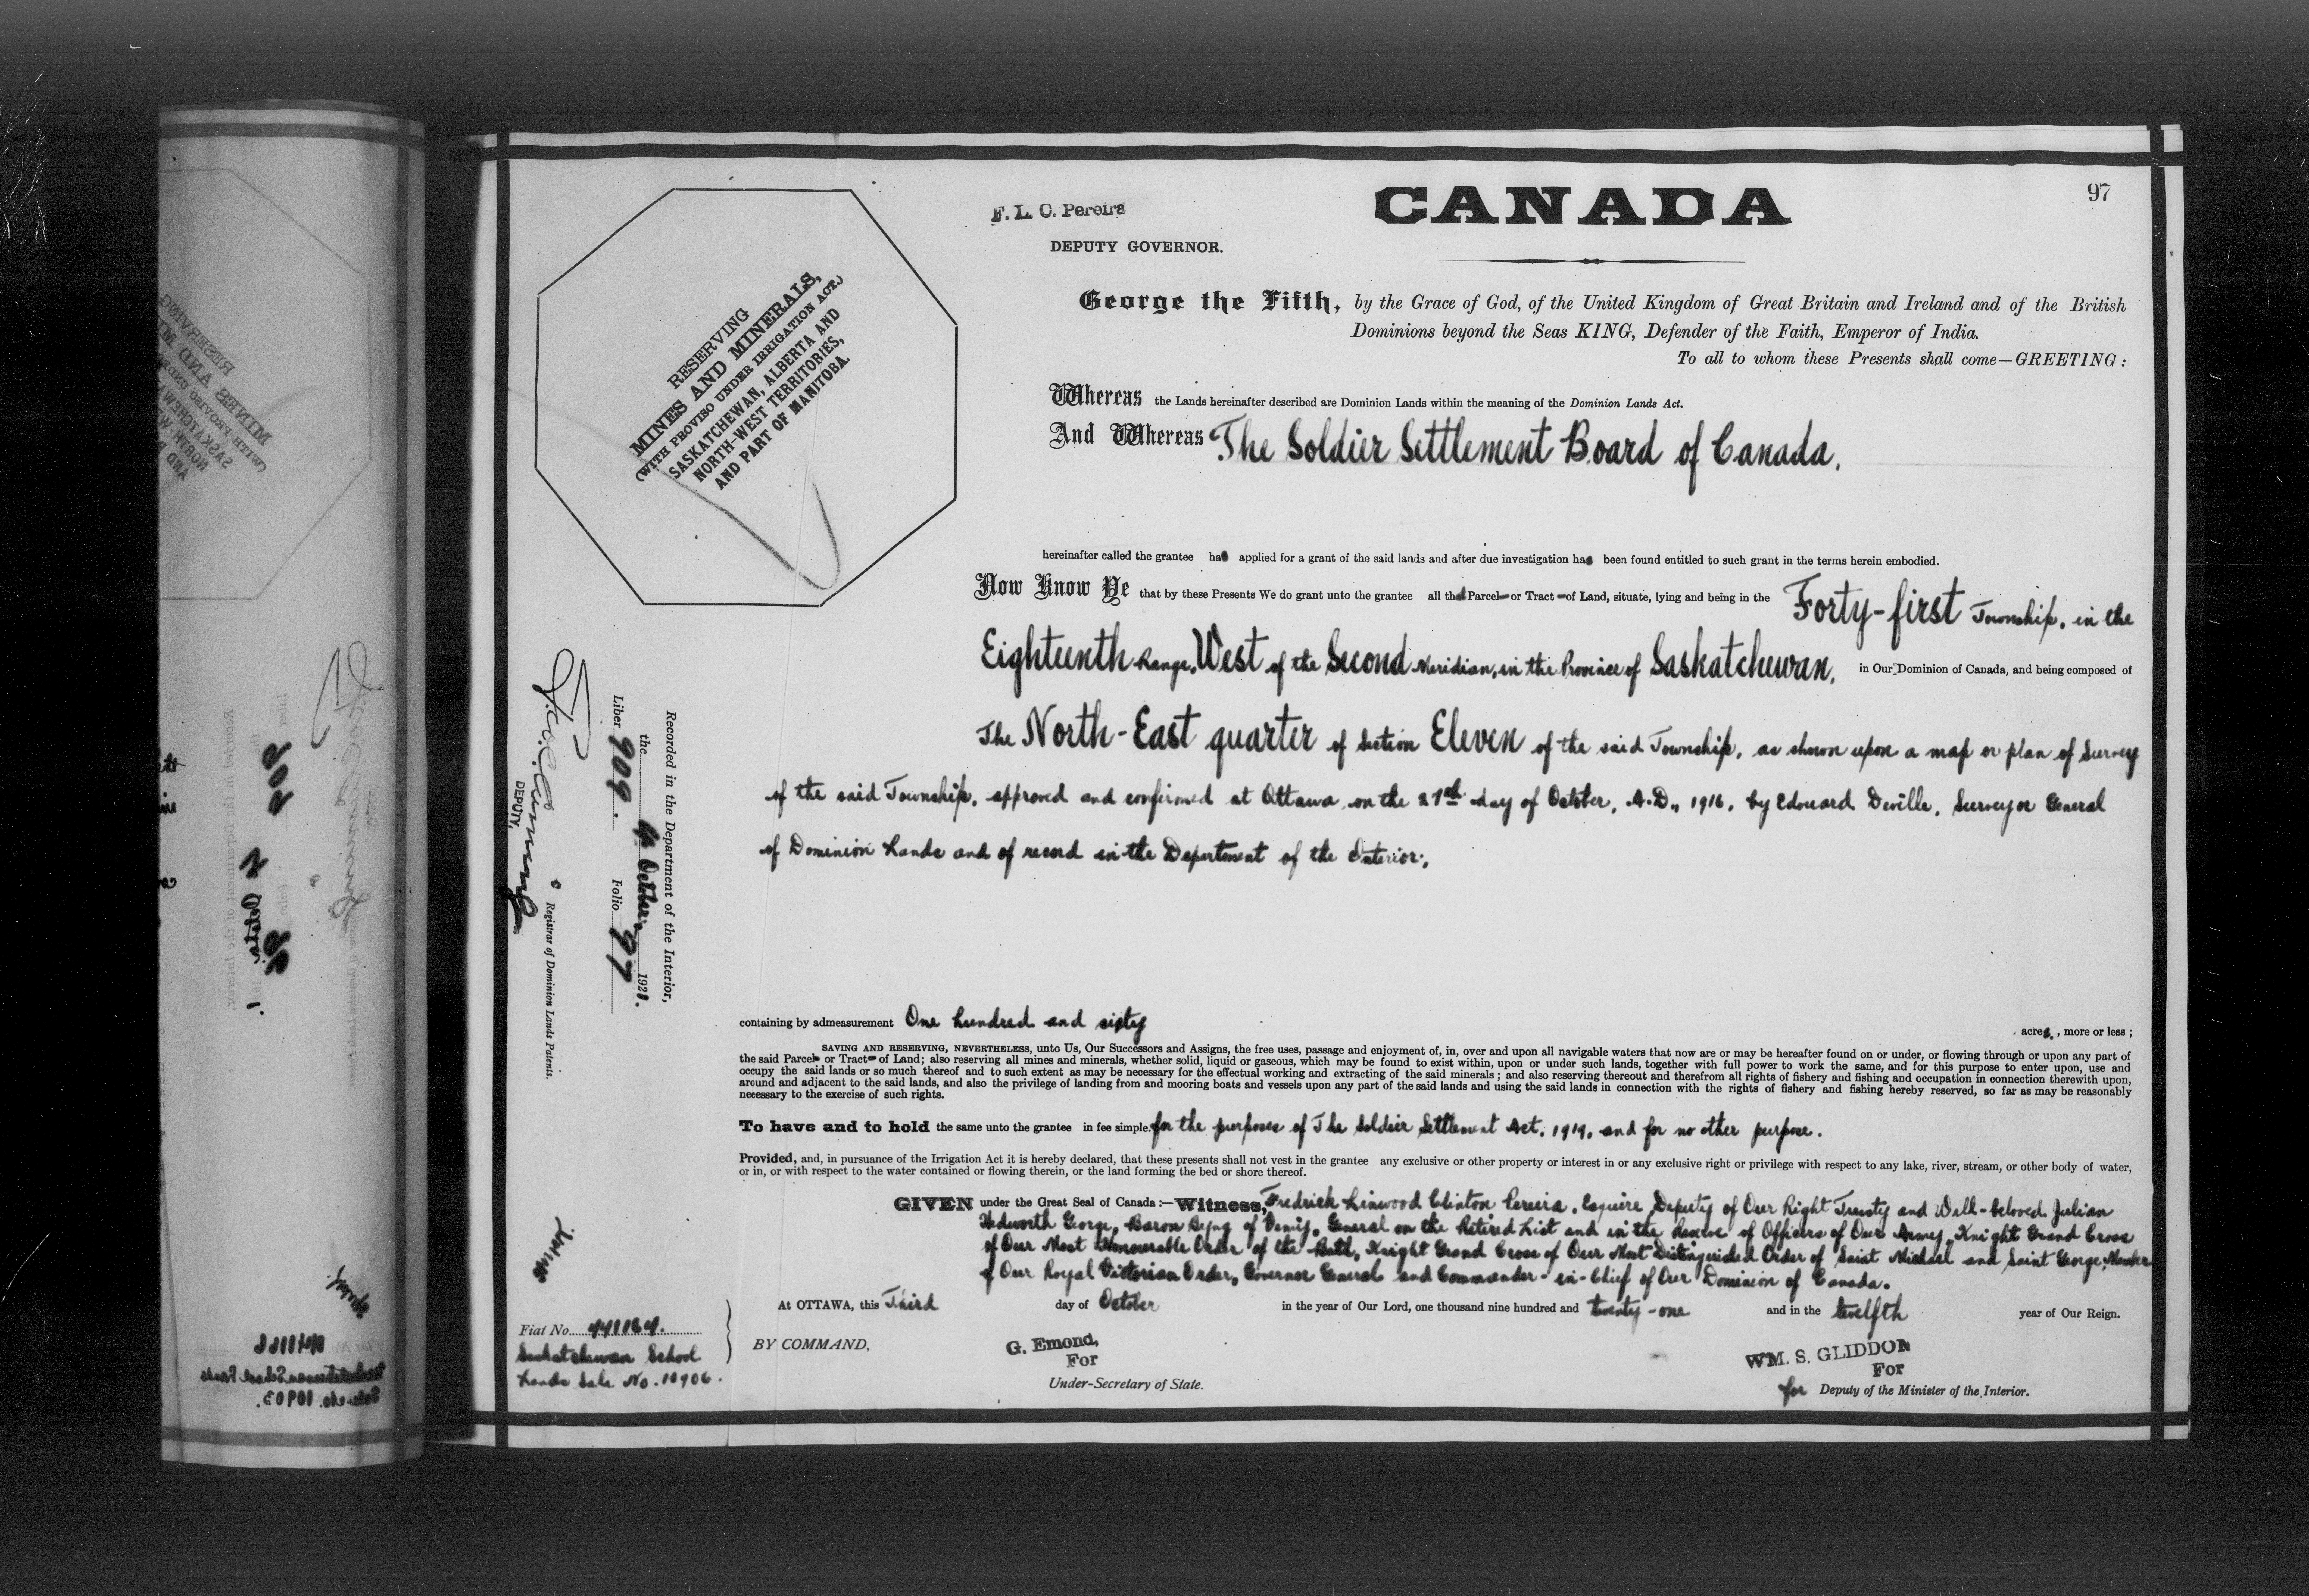 97
CANADA
F. L. O. Pereira
DEPUTY GOVERNOR.
RESERVING
MINES AND MINERALS,
(WITH PROVISO UNDER IRRIGATION ACT.)
SASKATCHEWAN, ALBERTA AND
NORTH-WEST TERRITORIES,
AND PART OF MANITOBA.
George the Fifth, by the Grace of God, of the United Kingdom of Great Britain and Ireland and of the British
Dominions beyond the Seas KING, Defender of the Faith, Emperor of India.
To all to whom these Presents shall come—GREETING:
Whereas the Lands hereinafter described are Dominion Lands within the meaning of the Dominion Lands Act.
And Whereas The Soldier Settlement Board of Canada,
hereinafter called the grantee has applied for a grant of the said lands and after due investigation has been found entitled to such grant in the terms herein embodied.
Now Know Ye that by these Presents We do grant unto the grantee all that Parcel or Tract of Land, situate, lying and being in the Forty-first Township, in the
Eighteenth Range, West of the Second Meridian, in the Province of Saskatchewan, in Our Dominion of Canada, and being composed of
The North-East quarter of Section Eleven of the said Township, as shown upon a map or plan of Survey
of the said Township, approved and confirmed at Ottawa, on the day of October, A.D., 1916, by Edouard Deville, Surveyor General
of Dominion Lands and of record in the Department of the Interior,
Recorded in the Department of the Interior,
the October 1921.
Liber 909. Folio 97
Registrar of Dominion Lands Patents.
DEPUTY,
containing by admeasurement One hundred and sixty acres, more or less;
SAVING AND RESERVING, NEVERTHELESS, unto Us, Our Successors and Assigns, the free uses, passage and enjoyment of, in, over and upon all navigable waters that now are or may be hereafter found on or under, or flowing through or upon any part of
the said Parcel or Tract of Land; also reserving all mines and minerals, whether solid, liquid or gaseous, which may be found to exist within, upon or under such lands, together with full power to work the same, and for this purpose to enter upon, use and
occupy the said lands or so much thereof and to such extent as may be necessary for the effectual working and extracting of the said minerals; and also reserving thereout and therefrom all rights of fishery and fishing and occupation in connection therewith upon,
around and adjacent to the said lands, and also the privilege of landing from and mooring boats and vessels upon any part of the said lands and using the said lands in connection with the rights of fishery and fishing hereby reserved, so far as may be reasonably
necessary to the exercise of such rights.
To have and to hold the same unto the grantee in fee simple. for the purposes of The Soldier Settlement Act, 1919, and for no other purpose.
Provided, and, in pursuance of the Irrigation Act it is hereby declared, that these presents shall not vest in the grantee any exclusive or other property or interest in or any exclusive right or privilege with respect to any lake, river, stream, or other body of water,
or in, or with respect to the water contained or flowing therein, or the land forming the bed or shore thereof.
GIVEN under the Great Seal of Canada:—Witness, Fredrick Linwood Clinton Pereira, Esquire, Deputy of Our Right Trusty and Well-beloved Julian
Hedworth George, Baron Byng of Vimy, General on the Retired List and in the Reserve of Officers of Our Army, Knight Grand Cross
of Our Most Honourable Order of the Bath, Knight Grand Cross of Our Most Distinguished Order of Saint Michael and Saint George, Member
of Our Royal Victorian Order, Governor General and Commander-in-Chief of Our Dominion of Canada.
At OTTAWA, this Third day of October in the year of Our Lord, one thousand nine hundred and twenty-one and in the twelfth year of Our Reign.
BY COMMAND,
G. Emond,
For
Under-Secretary of State.
WM. S. GLIDDON
For
for Deputy of the Minister of the Interior.
Fiat No.
Saskatchewan School
Lands Sale No. 10906.